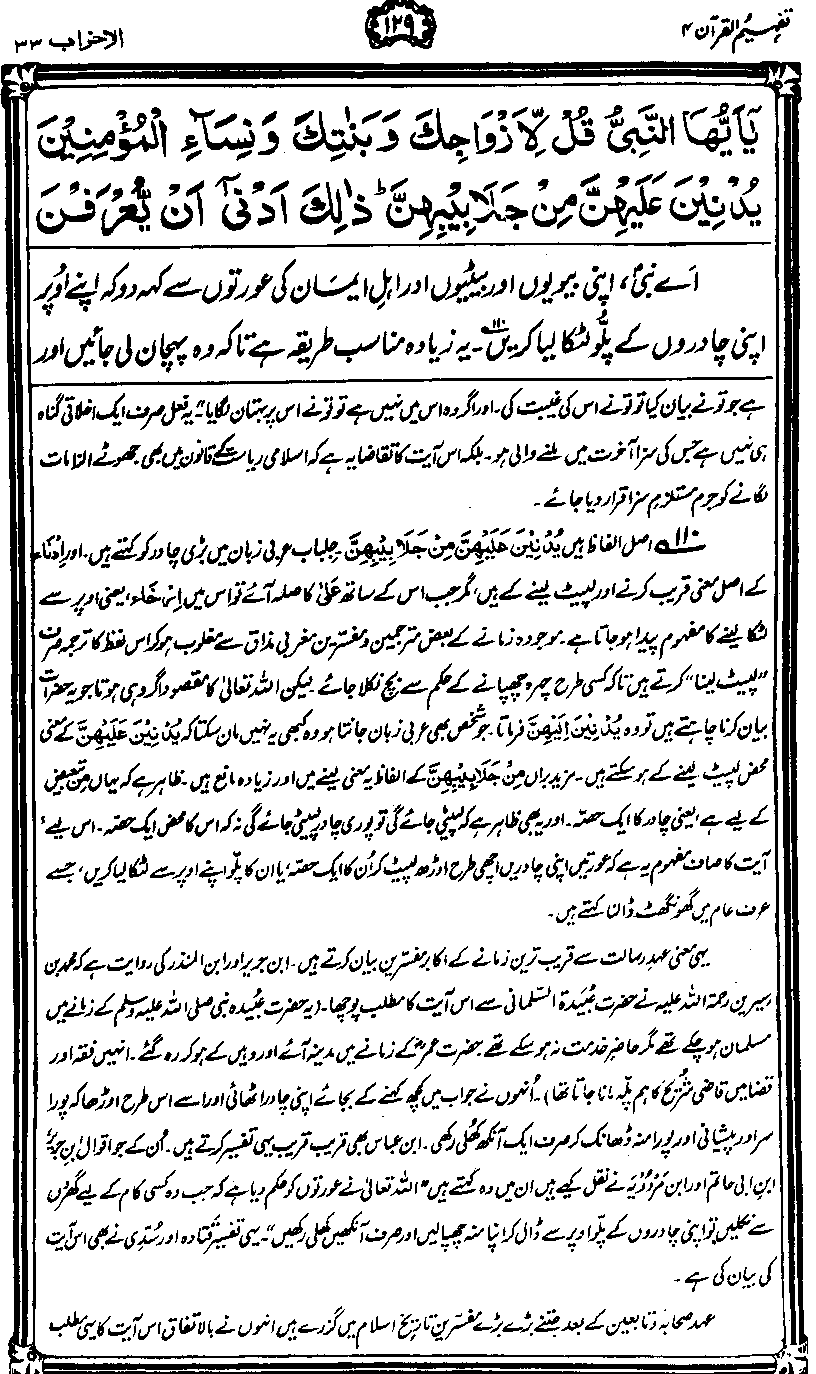 تفہیم القرآن ۴
۱۲۹
الاحزاب ۳۳
يٰۤاَيُّهَا النَّبِىُّ قُلْ لِّاَزْوَاجِكَ وَبَنٰتِكَ وَنِسَآءِ الْمُؤْمِنِيْنَ
يُدْنِيْنَ عَلَيْهِنَّ مِنْ جَلَابِيْبِهِنَّ ؕ ذٰلِكَ اَدْنٰۤى اَنْ يُّعْرَفْنَ
اَے نبیؐ، اپنی بیویوں اور بیٹیوں اور اہلِ ایمان کی عورتوں سے کہہ دو کہ اپنے اُوپر
اپنی چادروں کے پلّو لٹکا لیا کریں۱۱۰۔ یہ زیادہ مناسب طریقہ ہے تاکہ وہ پہچان لی جائیں اور
ہے جو تُو نے بیان کیا تو تُو نے اس کی غیبت کی۔ اور اگر وہ اس میں نہیں ہے تو تُو نے اس پر بہتان لگایا"۔ یہ فعل صرف ایک اخلاقی گناہ
ہی نہیں ہے جس کی سزا آخرت میں ملنے والی ہو۔ بلکہ اس آیت کا تقاضا یہ ہے کہ اسلامی ریاست کے قانون میں بھی جھوٹے الزامات
لگانے کو جرم مستلزمِ سزا قرار دیا جائے۔
۱۱۰؎ اصل الفاظ ہیں يُدْنِيْنَ عَلَيْهِنَّ مِنْ جَلَابِيْبِهِنَّ۔ جلباب عربی زبان میں بڑی چادر کو کہتے ہیں۔ اور اِدْنَاء
کے اصل معنی قریب کرنے اور لپیٹ لینے کے ہیں، مگر جب اس کے ساتھ عَلیٰ کا صلہ آئے تو اس میں اِرْخَاء، یعنی اوپر سے
لٹکا لینے کا مفہوم پیدا ہو جاتا ہے۔ موجودہ زمانے کے بعض مترجمین و مفسّرین مغربی مذاق سے مغلوب ہو کر اس لفظ کا ترجمہ صرف
"لپیٹ لینا" کرتے ہیں تاکہ کسی طرح چہرہ چھپانے کے حکم سے بچ نکلا جائے۔ لیکن اللہ تعالیٰ کا مقصود اگر وہی ہوتا جو یہ حضرات
بیان کرنا چاہتے ہیں تو وہ يُدْنِيْنَ اِلَيْهِنَّ فرماتا۔ جو شخص بھی عربی زبان جانتا ہو وہ کبھی یہ نہیں مان سکتا کہ يُدْنِيْنَ عَلَيْهِنَّ کے معنی
محض لپیٹ لینے کے ہو سکتے ہیں۔ مزید براں مِنْ جَلَابِيْبِهِنَّ کے الفاظ یہ معنی لینے میں اور زیادہ مانع ہیں۔ ظاہر ہے کہ یہاں مِن تبعیض
کے لیے ہے، یعنی چادر کا ایک حصّہ۔ اور یہ بھی ظاہر ہے کہ لپیٹی جائے گی تو پوری چادر لپیٹی جائے گی نہ کہ اس کا محض ایک حصّہ۔ اس لیے
آیت کا صاف مفہوم یہ ہے کہ عورتیں اپنی چادریں اچھی طرح اوڑھ لپیٹ کر اُن کا ایک حصّہ، یا ان کا پلّو اپنے اوپر سے لٹکا لیا کریں، جسے
عرفِ عام میں گھونگھٹ ڈالنا کہتے ہیں۔
یہی معنی عہدِ رسالت سے قریب ترین زمانے کے اکابر مفسّرین بیان کرتے ہیں۔ ابن جریر اور ابن المنذر کی روایت ہے کہ محمد بن
سیرین رحمۃ اللہ علیہ نے حضرت عَبِیدۃ السّلمانی سے اس آیت کا مطلب پوچھا۔ (یہ حضرت عَبِیدہ نبی صلی اللہ علیہ وسلم کے زمانے میں
مسلمان ہو چکے تھے مگر حاضرِ خدمت نہ ہو سکے تھے۔ حضرت عمرؓ کے زمانے میں مدینہ آئے اور وہیں کے ہو کر رہ گئے۔ انہیں فقہ اور
قضا میں قاضی شُرَیح کا ہم پلّہ مانا جاتا تھا)۔ اُنہوں نے جواب میں کچھ کہنے کے بجائے اپنی چادر اٹھائی اور اسے اس طرح اوڑھا کہ پورا
سر اور پیشانی اور پورا منہ ڈھانک کر صرف ایک آنکھ کُھلی رکھی۔ ابن عباس بھی قریب قریب یہی تفسیر کرتے ہیں۔ اُن کے جو اقوال ابنِ جریر،
ابن ابی حاتم اور ابن مَرْدُوْیَہ نے نقل کیے ہیں ان میں وہ کہتے ہیں "اللہ تعالیٰ نے عورتوں کو حکم دیا ہے کہ جب وہ کسی کام کے لیے گھروں
سے نکلیں تو اپنی چادروں کے پلّو اوپر سے ڈال کر اپنا منہ چھپا لیں اور صرف آنکھیں کھلی رکھیں"۔ یہی تفسیر قَتادہ اور سُدّی نے بھی اس آیت
کی بیان کی ہے۔
عہدِ صحابہ و تابعین کے بعد جتنے بڑے بڑے مفسّرین تاریخِ اسلام میں گزرے ہیں انہوں نے بالاتفاق اس آیت کا یہی مطلب